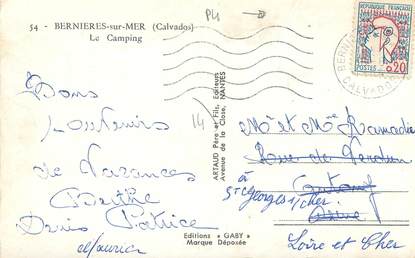 54 - BERNIERES-sur-MER (Calvados)
Le Camping
P14
RÉPUBLIQUE FRANÇAISE
POSTES 0,20
BERNIERES
CALVADOS
Bons
souvenirs
de Vacances
Berthe
Denis Patrice
Maurice
14
ARTAUD Père et Fils, Editeurs
Avenue de la Close, NANTES
Editions "GABY"
Marque Déposée
Mr et Mme Ramadier
Rue de Verdun
St Georges s/Cher
Loire et Cher